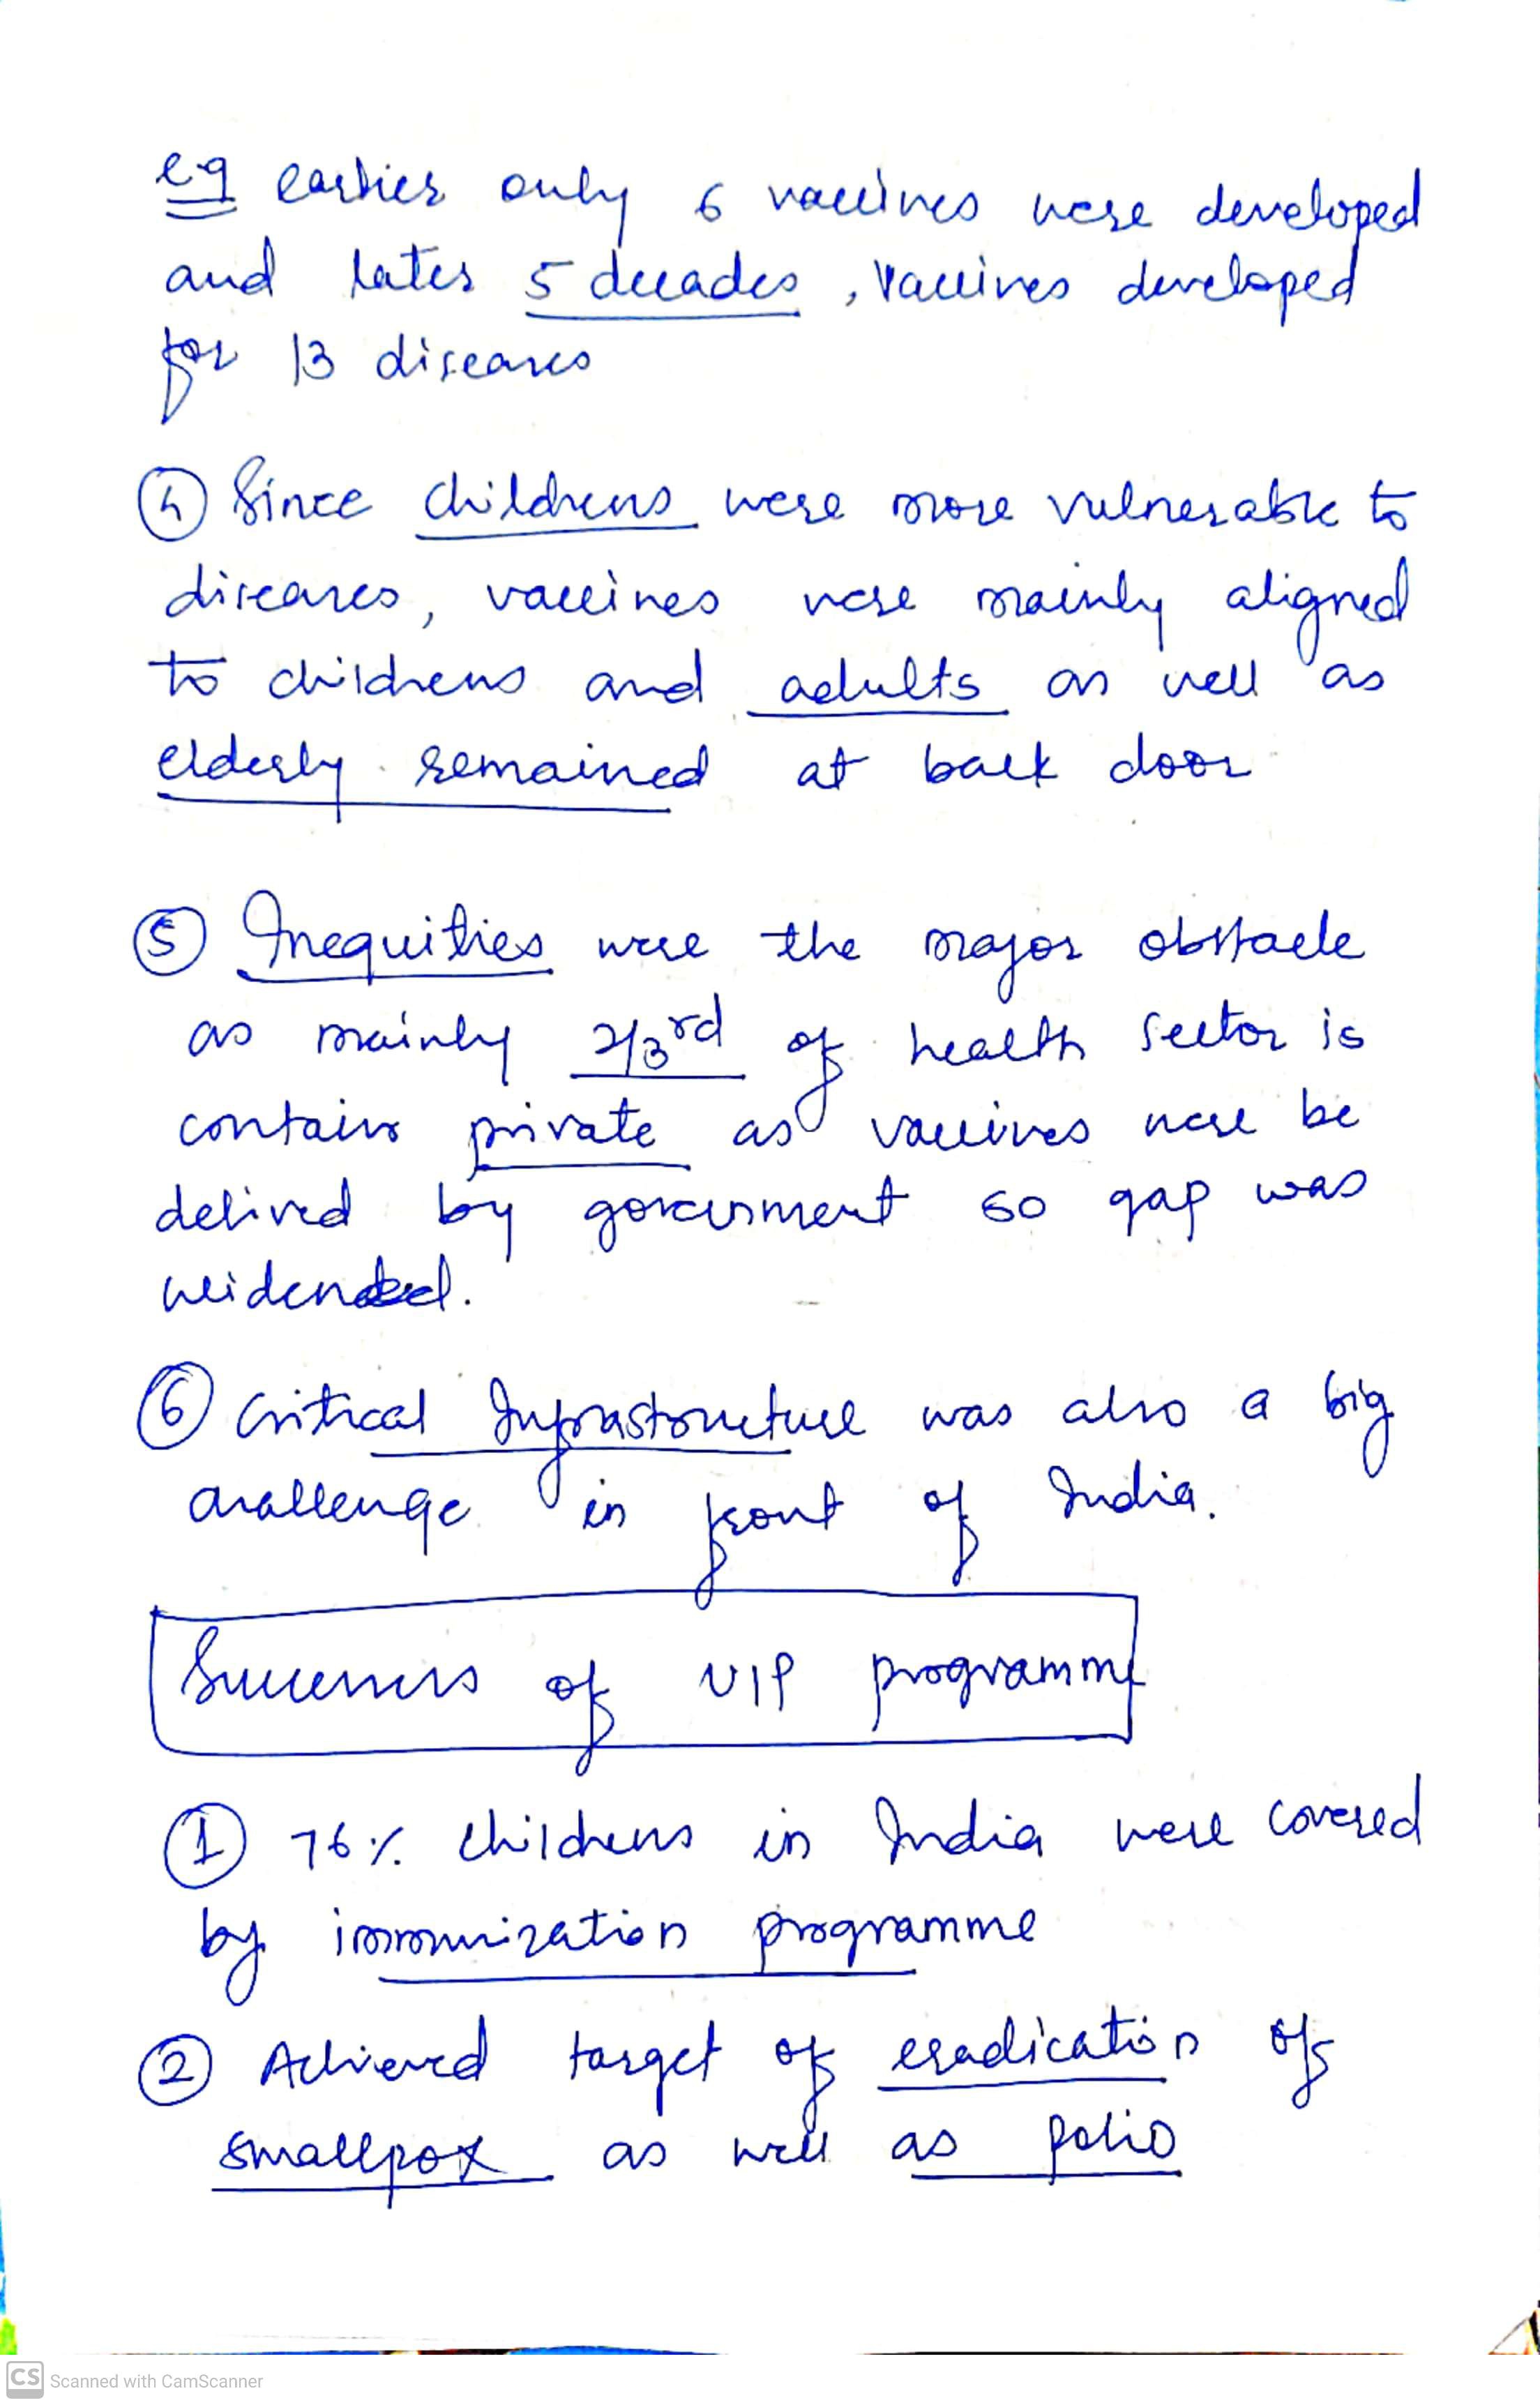 eg earlier only 6 vaccines were developed
and later 5 decades, vaccines developed
for 13 diseases
④ Since childrens were more vulnerable to
diseases, vaccines were mainly aligned
to childrens and adults as well as
elderly remained at back door
⑤ Inequities were the major obstacle
as mainly 2/3rd of health sector is
contains private as vaccines were be
delived by government so gap was
widended.
⑥ Critical Infrastructure was also a big
challenge in front of India.
Success of UIP programme
① 76% childrens in India were covered
by immunization programme
② Achieved target of eradication of
smallpox as well as polio
CS Scanned with CamScanner